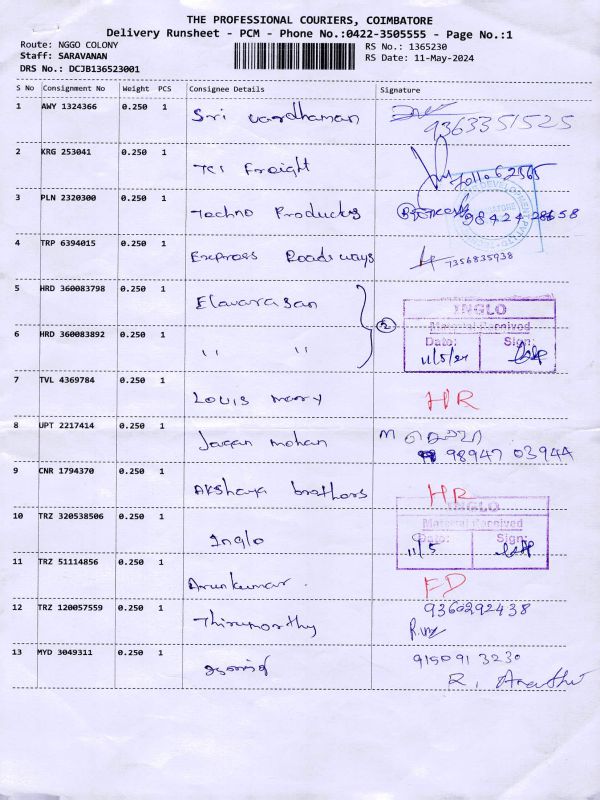 THE PROFESSIONAL COURIERS, COIMBATORE
Delivery Runsheet - PCM - Phone No.:0422-3505555 - Page No.:1
Route: NGGO COLONY
Staff: SARAVANAN
DRS No.: DCJB136523001
RS No.: 1365230
RS Date: 11-May-2024
S No Consignment No Weight PCS Consignee Details Signature
1 AWY 1324366 0.250 1 Sri vardhaman 9363351525
2 KRG 253041 0.250 1 TCI Freight
3 PLN 2320300 0.250 1 Techno Products
4 TRP 6394015 0.250 1 Express Roadways 7356835938
5 HRD 360083798 0.250 1 Elavarasan
6 HRD 360083892 0.250 1 " "
2
INGLO
Material Received
Date: Sign:
11/5/24
7 TVL 4369784 0.250 1 Louis mary HR
8 UPT 2217414 0.250 1 Jagan mohan
98947 03944
9 CNR 1794370 0.250 1 Akshaya brothers HR
10 TRZ 320538506 0.250 1 Inglo
INGLO
Material Received
Date: Sign:
11/5
11 TRZ 51114856 0.250 1 Arunkumar. FD
12 TRZ 120057559 0.250 1 Thirumorthy 9360292438
13 MYD 3049311 0.250 1 9150913230
R.